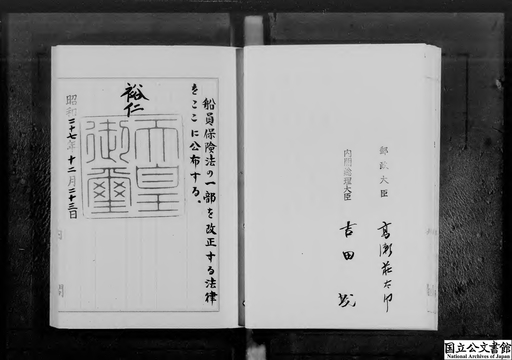 郵政大臣 高瀬荘太郎
内閣総理大臣 吉田茂
船員保険法の一部を改正する法律
をここに公布する。
裕仁
天皇御璽
昭和二十七年十二月二十三日
国立公文書館
National Archives of Japan